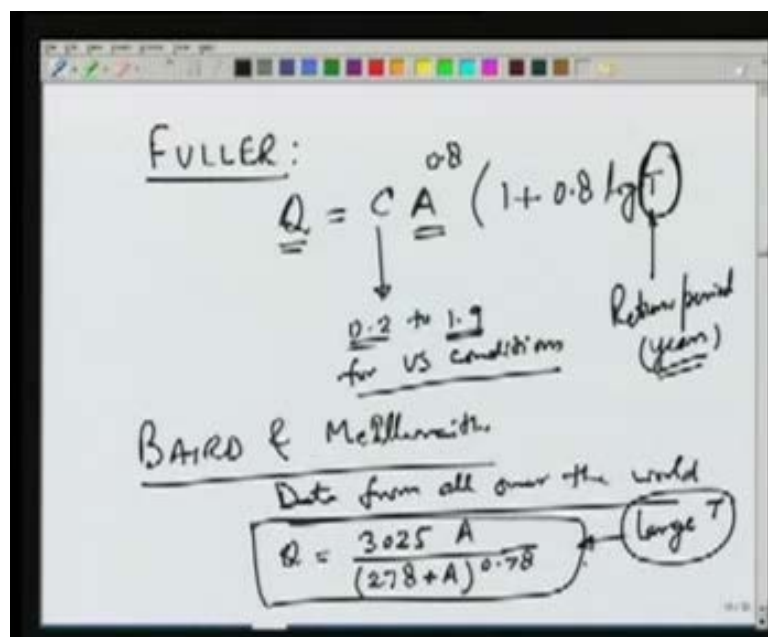 FULLER:
Q = C A^0.8 (1 + 0.8 log T
0.2 to 1.9
for US conditions
Return period
(years)
BAIRD & McIllwraith
Data from all over the world
Q = 3025 A / (278 + A)^0.78
large T